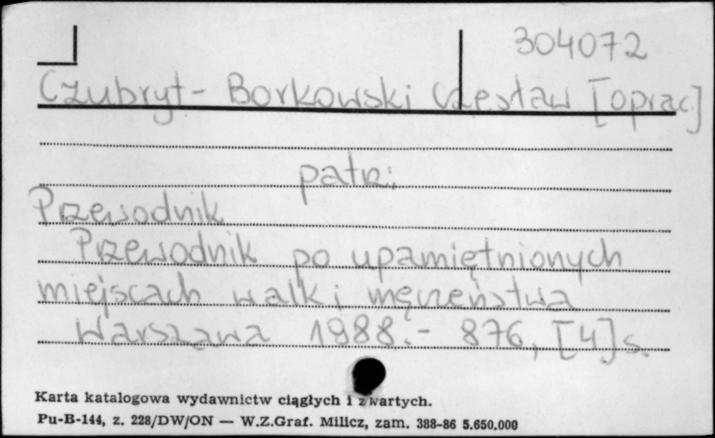 304072
Czubryt-Borkowski Czesław [oprac.]
patrz:
Przewodnik
Przewodnik po upamiętnionych
miejscach walk i męczeństwa
Warszawa 1988.- 876, [4] s.
Karta katalogowa wydawnictw ciągłych i zwartych.
Pu-B-144, z. 228/DW/ON — W.Z.Graf. Milicz, zam. 388-86 5.650.000